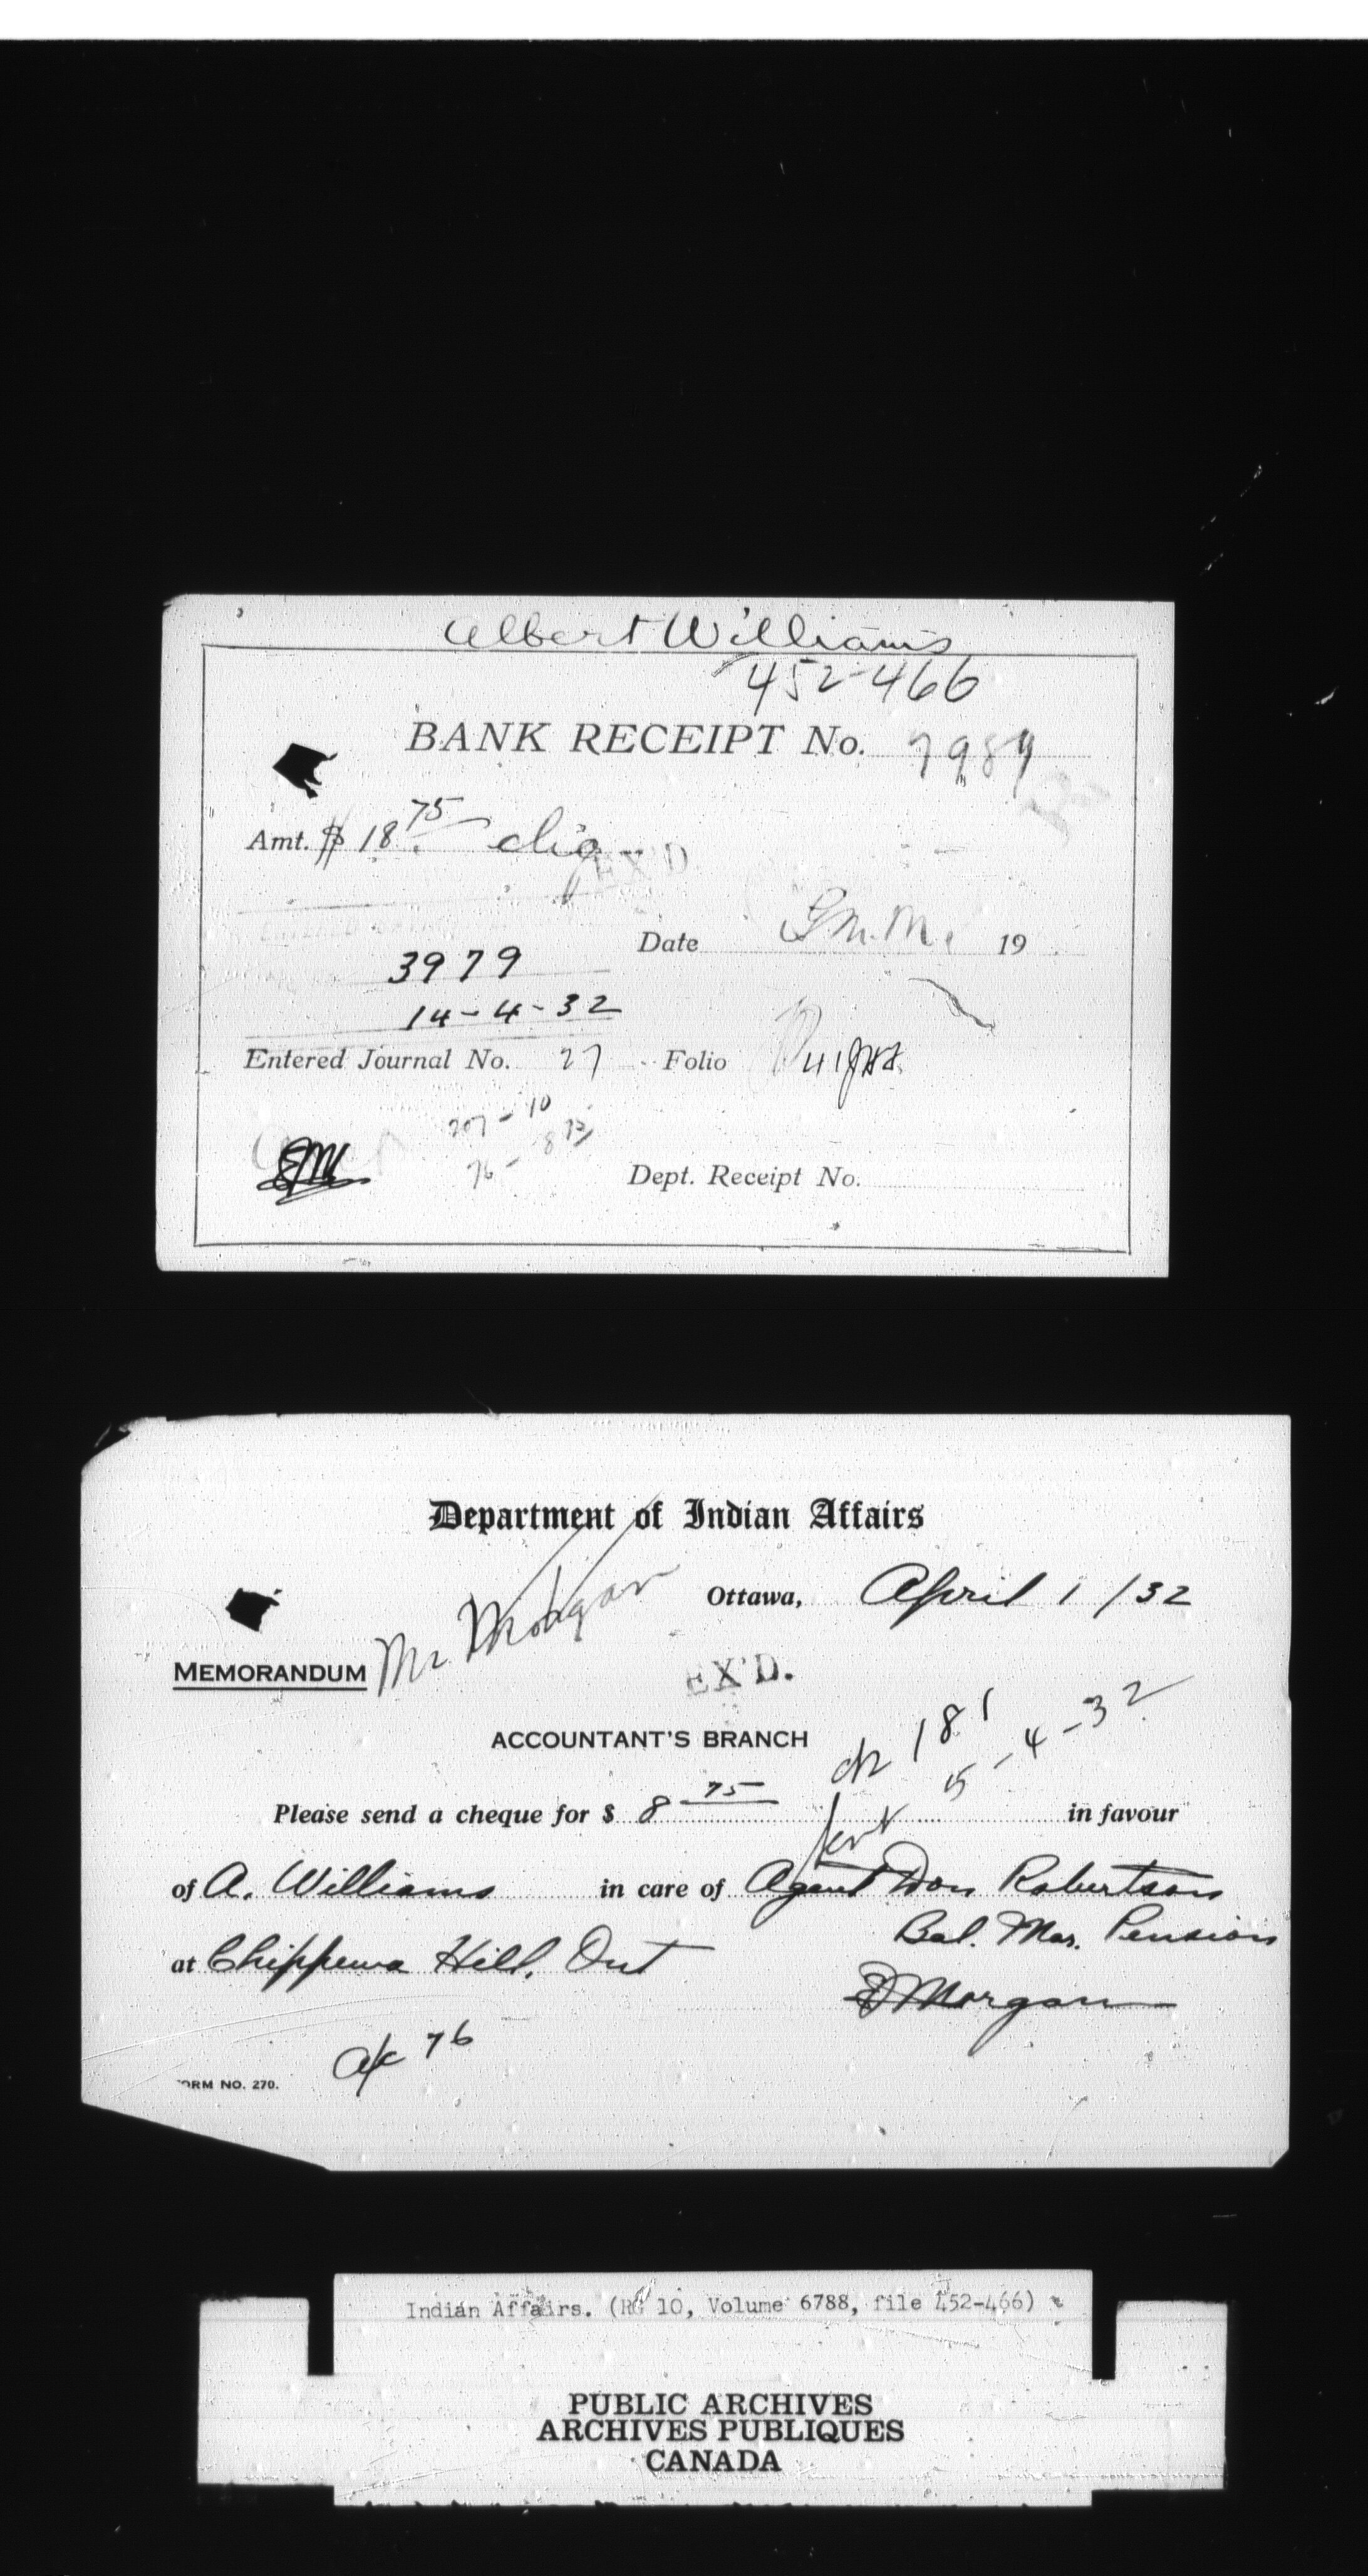 Albert Williams
452-466
BANK RECEIPT No. 7989
Amt. $18.75 chq
EX'D
3979
Date 19
14-4-32
Entered Journal No. 27 Folio
207-10
76-8 75
Dept. Receipt No.
Department of Indian Affairs
Ottawa, April 1/32
Mr. Morgan
MEMORANDUM
EX'D.
ACCOUNTANT'S BRANCH
181
5-4-32
Please send a cheque for $ 8 75 in favour
of A. Williams in care of Agent Don Robertson
Bal. Mar. Pension
at Chippewa Hill, Ont
Morgan
a/c 76
ORM NO. 270.
Indian Affairs. (RG 10, Volume 6788, file 452-466)
PUBLIC ARCHIVES
ARCHIVES PUBLIQUES
CANADA